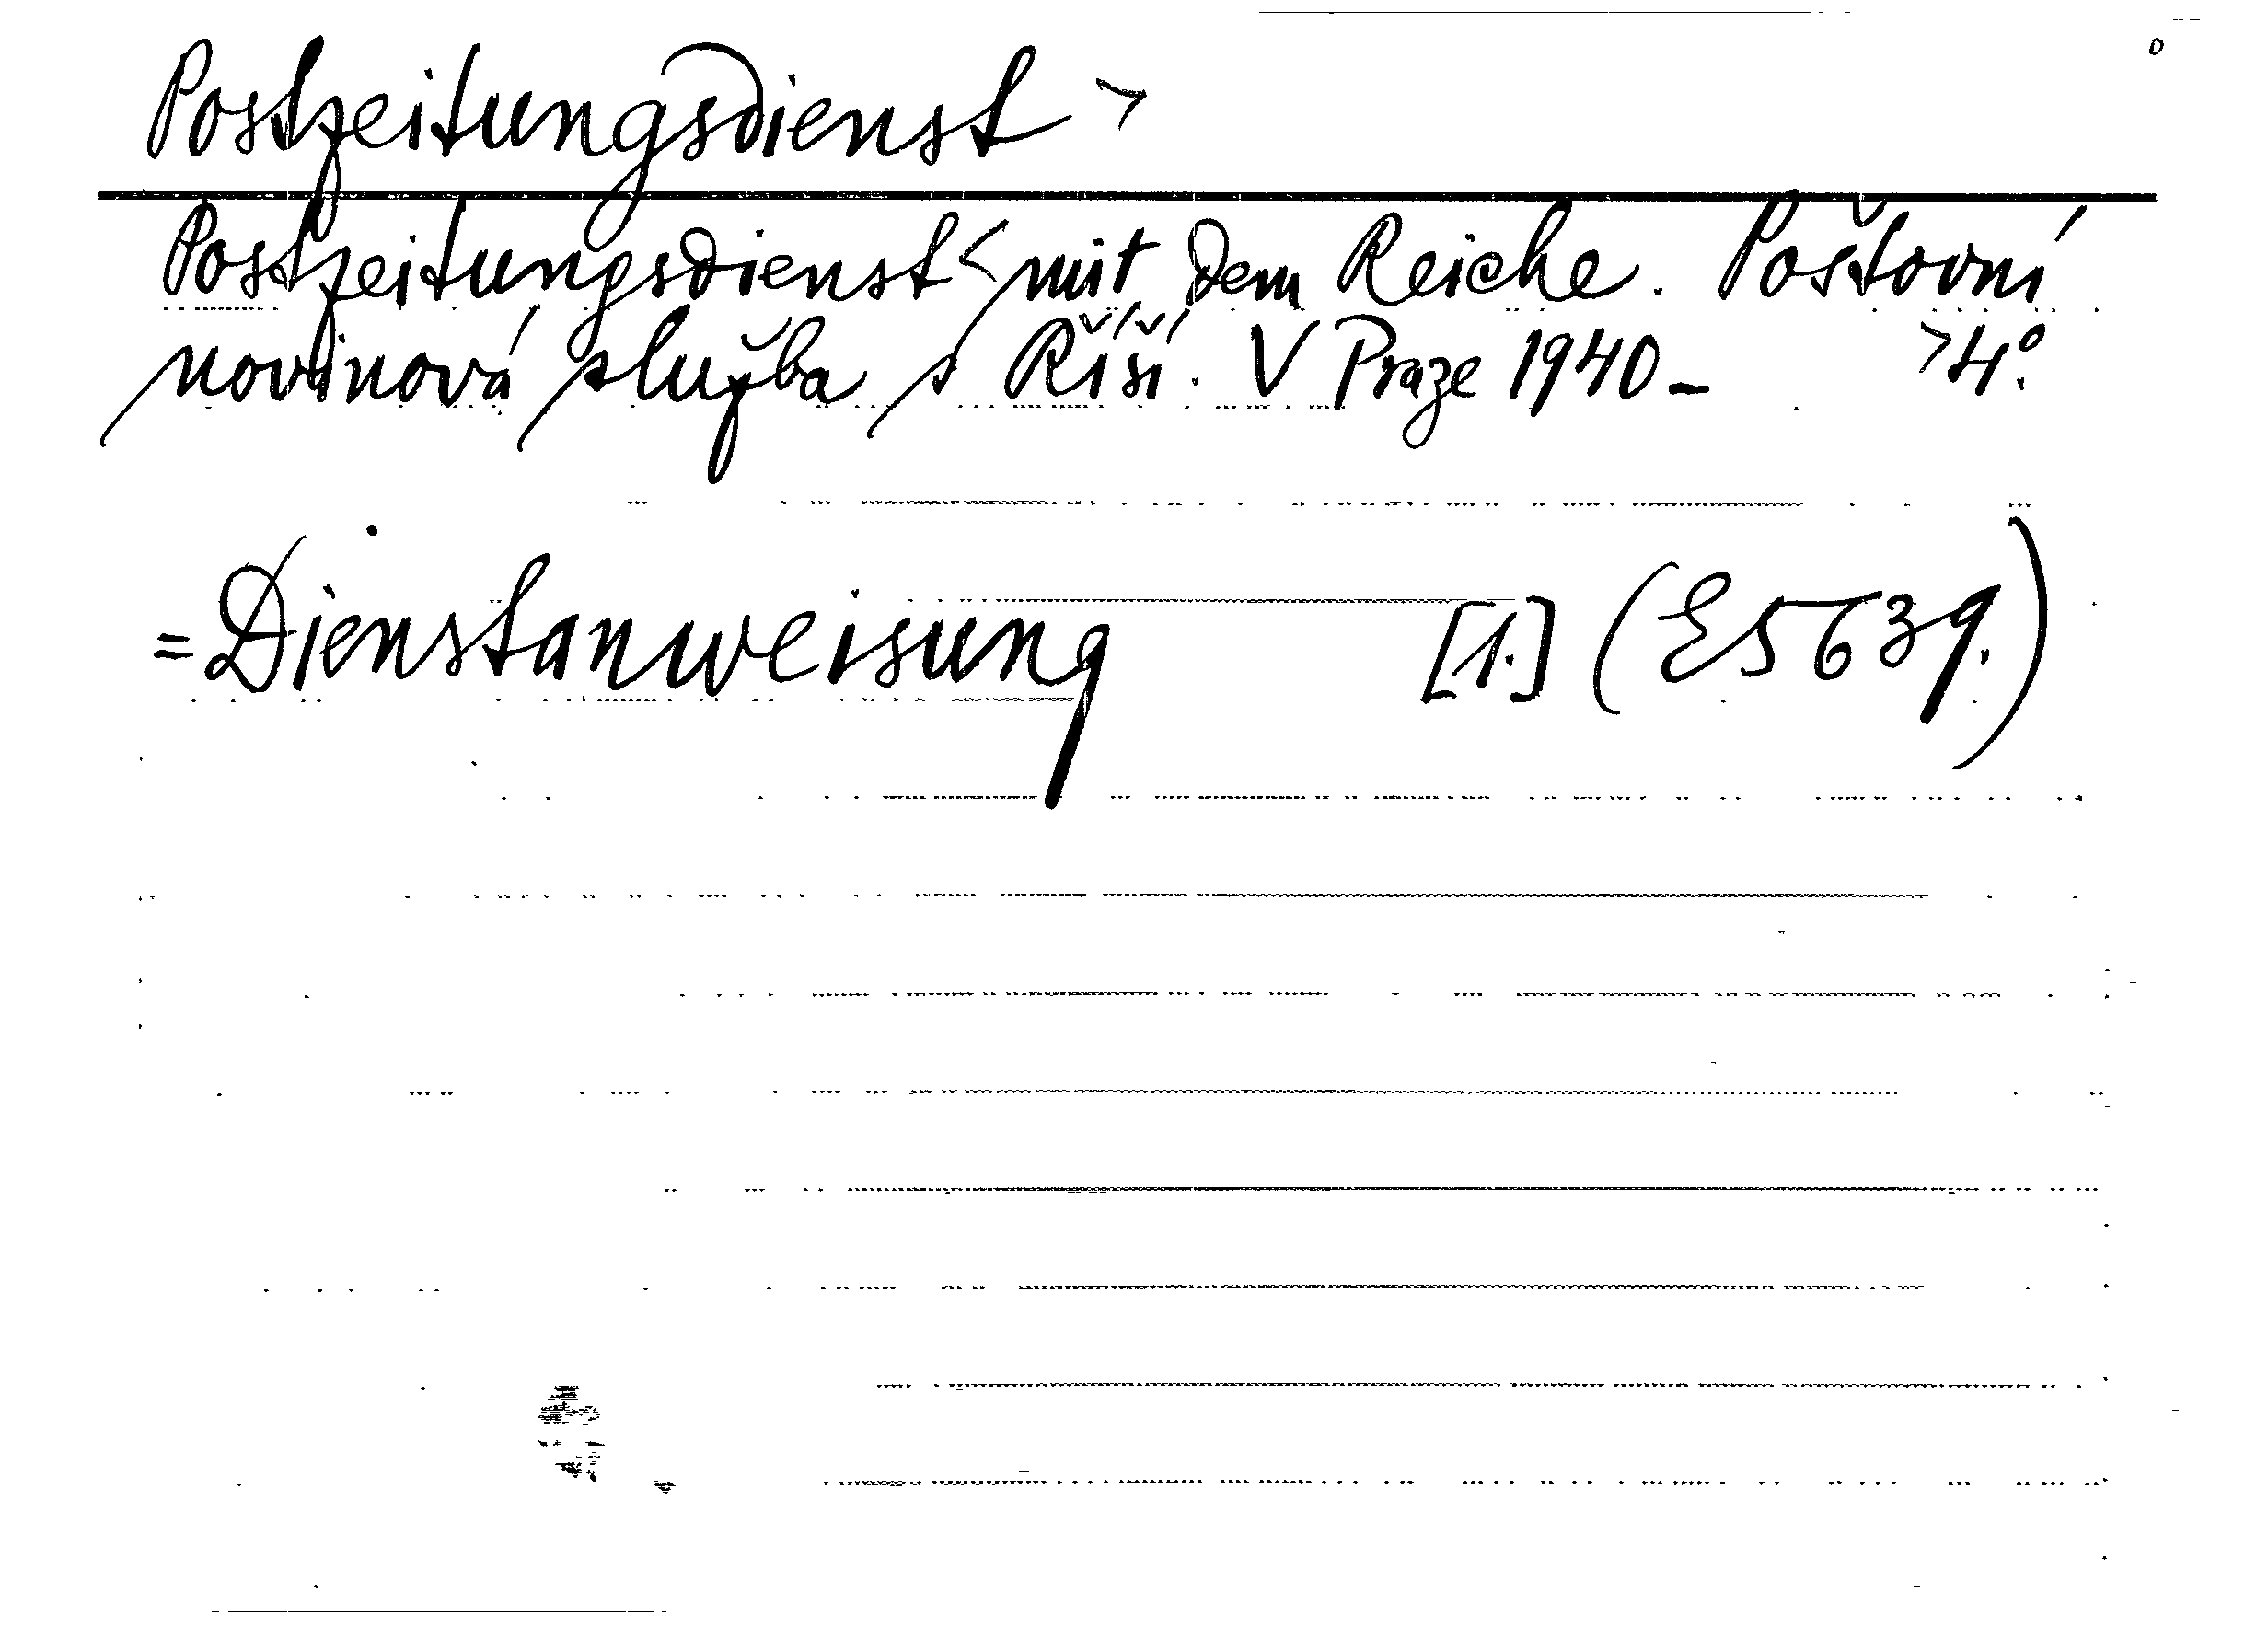 Postzeitungsdienst >
Postzeitungsdienst < mit dem Reiche. Poštovní
novinová služba s Říší. V Praze 1940 - > 4°.
= Dienstanweisung [1.] (E 5639.)